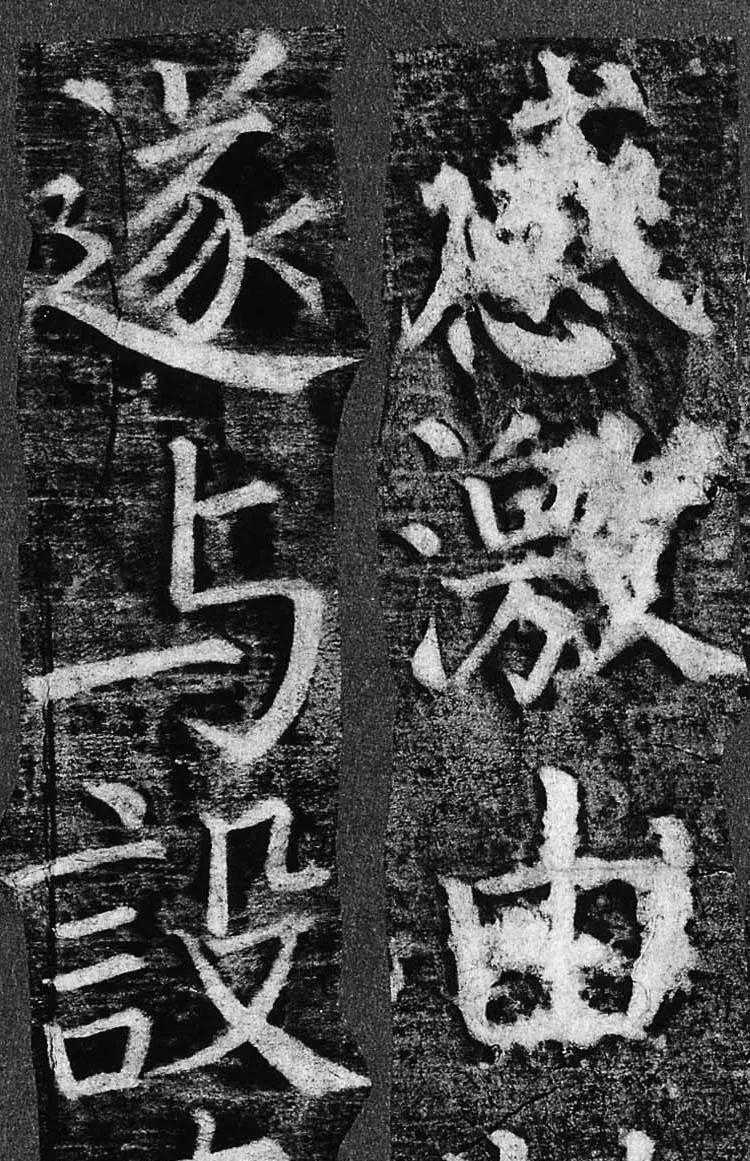 感激由
遂与設